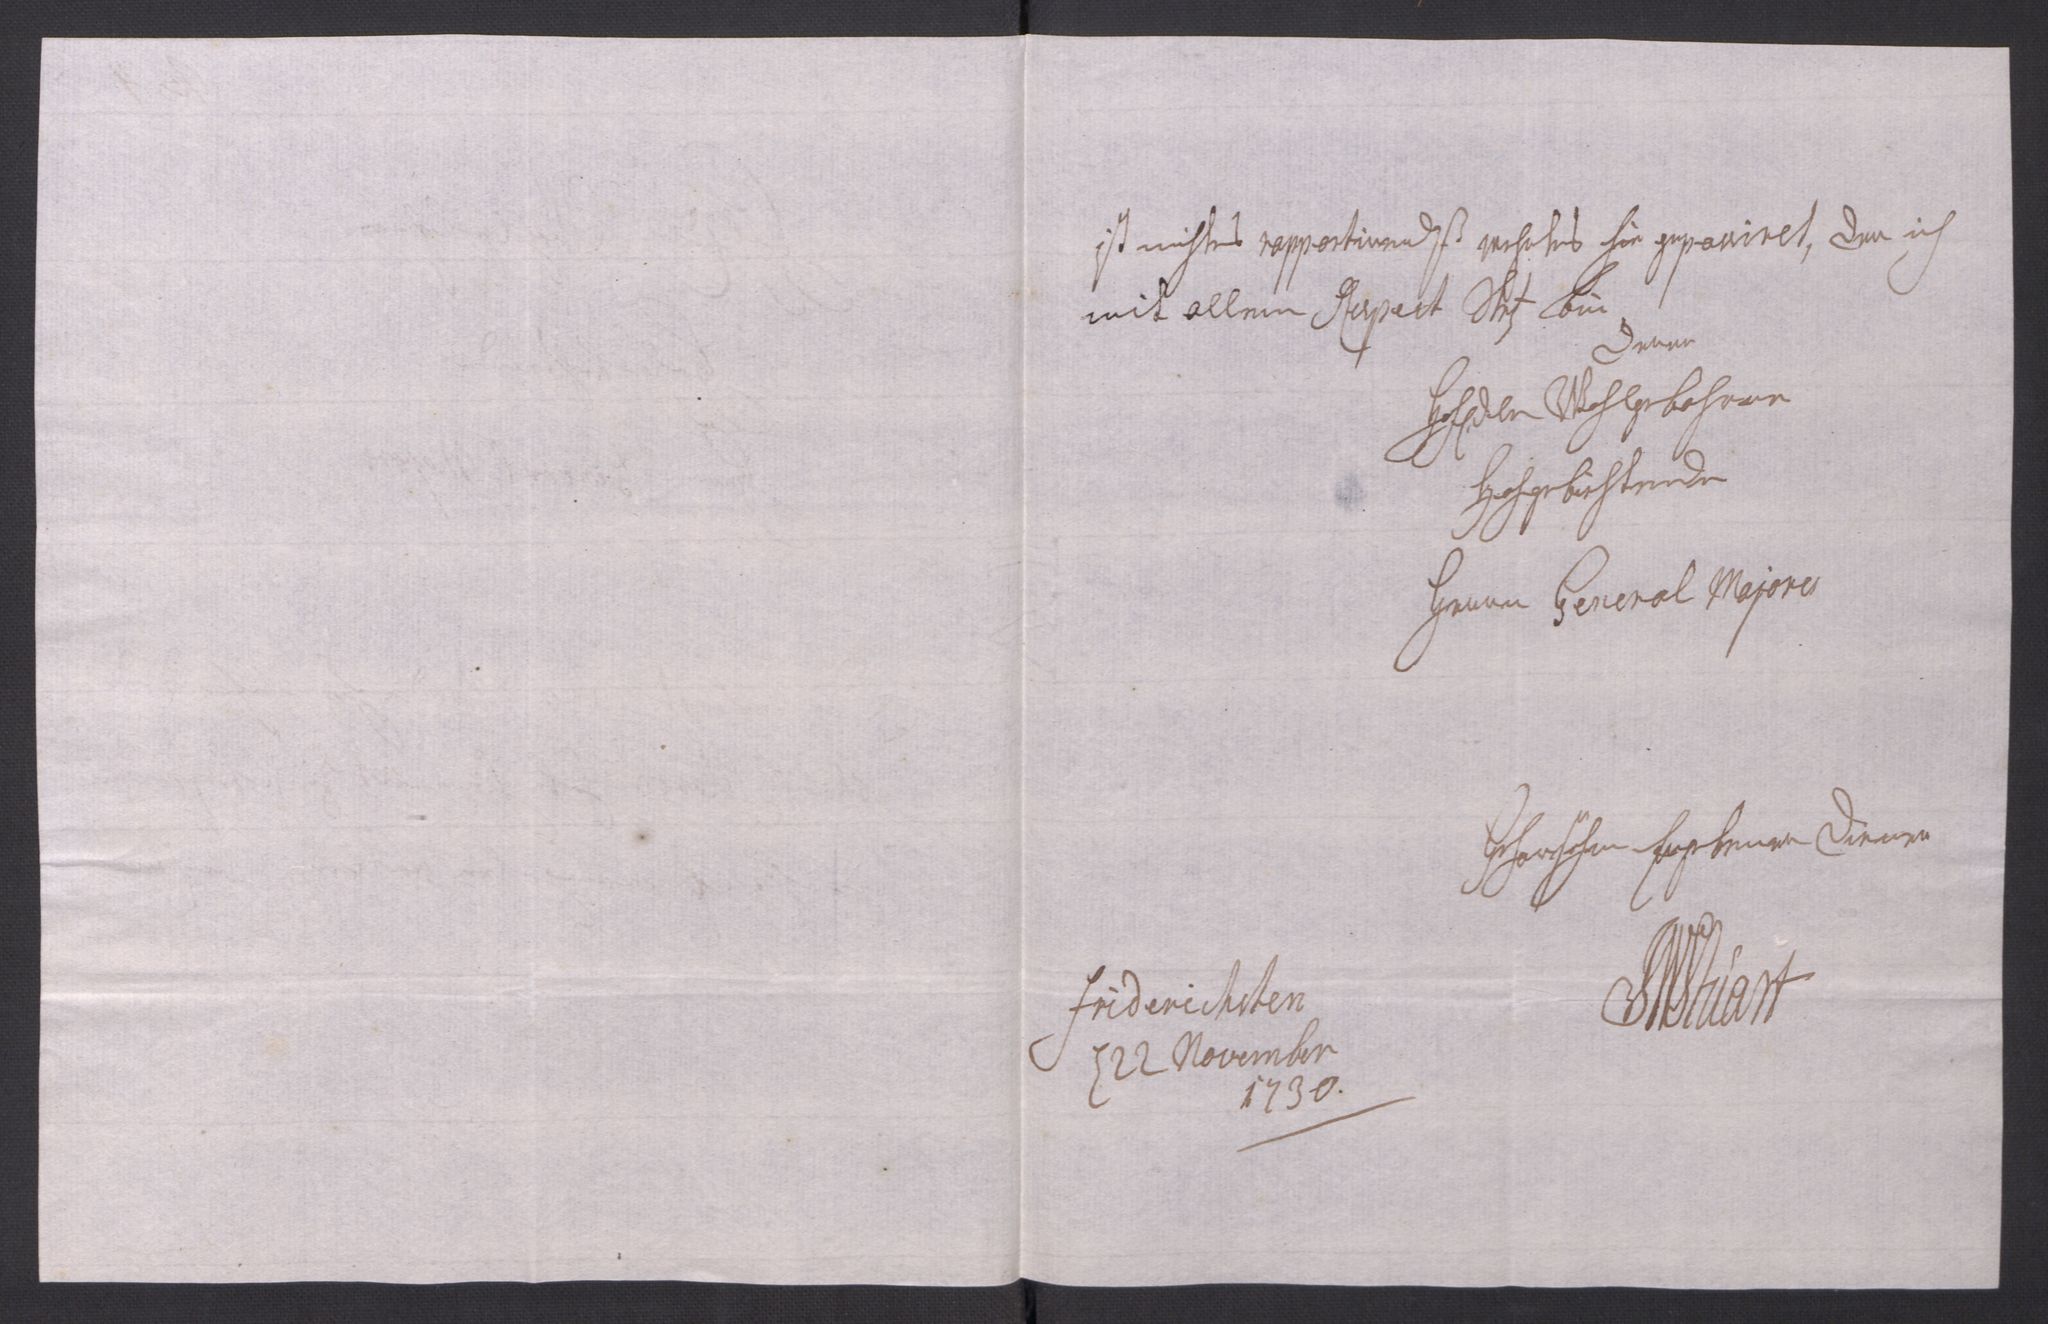 ist nichtes rapportirendes wehrtes hie gepassiret, der ich
mit allem Respect Stets bin
Deren
HochEdlen Wohlgebohren
Hochgebiehtende
Herrn General Majores
Gehorsahm Ergebener Diener
Stúart
Friderichsten
d 22 November
1730.